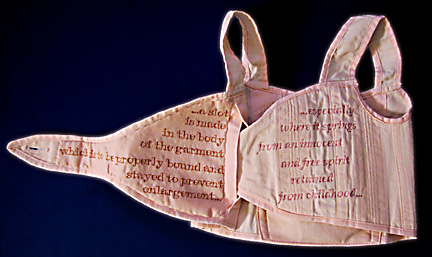 ...a slot
is made
in the body
of the garment
which is to be properly bound and
stayed to prevent
enlargement...
...especially
where it springs
from an innocent
and free spirit
retained
from childhood...